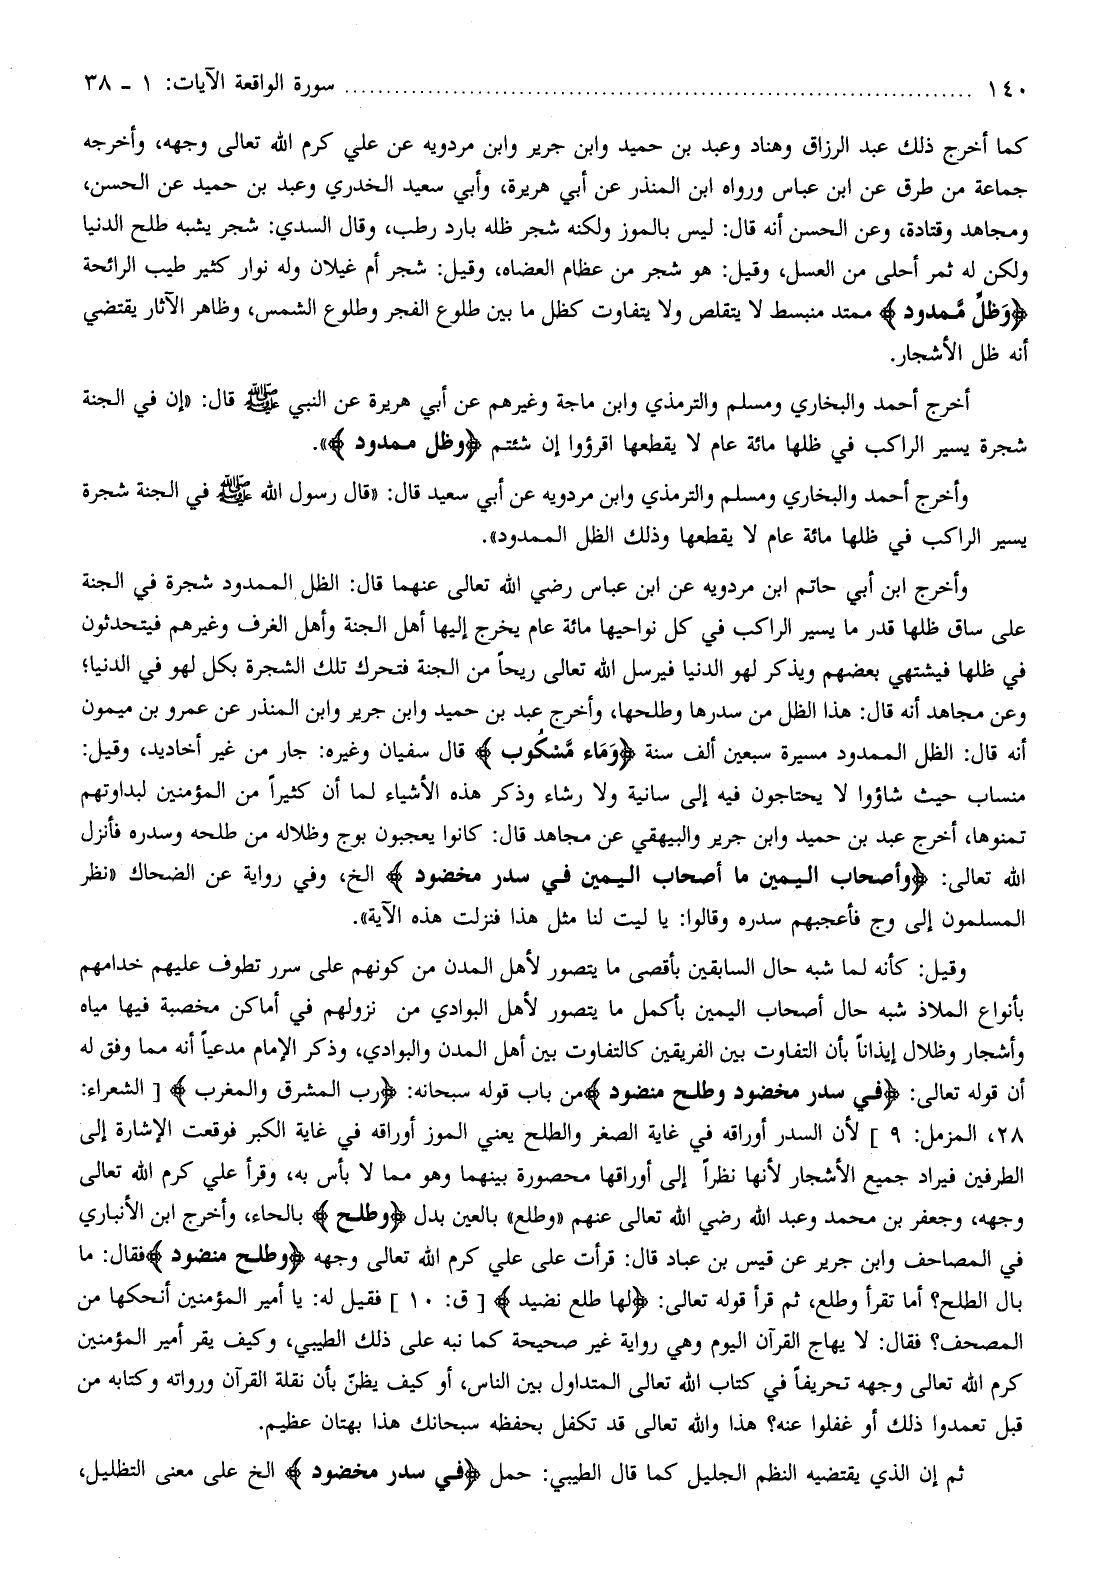 ١٤٠ ........................................................................... سورة الواقعة الآيات: ١ ـ ٣٨
كما أخرج ذلك عبد الرزاق وهناد وعبد بن حميد وابن جرير وابن مردويه عن علي كرم الله تعالى وجهه، وأخرجه
جماعة من طرق عن ابن عباس ورواه ابن المنذر عن أبي هريرة، وأبي سعيد الخدري وعبد بن حميد عن الحسن،
ومجاهد وقتادة، وعن الحسن أنه قال: ليس بالموز ولكنه شجر ظله بارد رطب، وقال السدي: شجر يشبه طلح الدنيا
ولكن له ثمر أحلى من العسل، وقيل: هو شجر من عظام العضاه، وقيل: شجر أم غيلان وله نوار كثير طيب الرائحة
﴿وَظلٍّ مَّمدود﴾ ممتد منبسط لا يتقلص ولا يتفاوت كظل ما بين طلوع الفجر وطلوع الشمس، وظاهر الآثار يقتضي
أنه ظل الأشجار.
أخرج أحمد والبخاري ومسلم والترمذي وابن ماجة وغيرهم عن أبي هريرة عن النبي ﷺ قال: «إن في الجنة
شجرة يسير الراكب في ظلها مائة عام لا يقطعها اقرؤوا إن شئتم ﴿وظل ممدود﴾».
وأخرج أحمد والبخاري ومسلم والترمذي وابن مردويه عن أبي سعيد قال: «قال رسول الله ﷺ في الجنة شجرة
يسير الراكب في ظلها مائة عام لا يقطعها وذلك الظل الممدود».
وأخرج ابن أبي حاتم ابن مردويه عن ابن عباس رضي الله تعالى عنهما قال: الظل الممدود شجرة في الجنة
على ساق ظلها قدر ما يسير الراكب في كل نواحيها مائة عام يخرج إليها أهل الجنة وأهل الغرف وغيرهم فيتحدثون
في ظلها فيشتهي بعضهم ويذكر لهو الدنيا فيرسل الله تعالى ريحاً من الجنة فتحرك تلك الشجرة بكل لهو في الدنيا؛
وعن مجاهد أنه قال: هذا الظل من سدرها وطلحها، وأخرج عبد بن حميد وابن جرير وابن المنذر عن عمرو بن ميمون
أنه قال: الظل الممدود مسيرة سبعين ألف سنة ﴿وَمَاء مَّسْكُوب﴾ قال سفيان وغيره: جار من غير أخاديد، وقيل:
منساب حيث شاؤوا لا يحتاجون فيه إلى سانية ولا رشاء وذكر هذه الأشياء لما أن كثيراً من المؤمنين لبداوتهم
تمنوها، أخرج عبد بن حميد وابن جرير والبيهقي عن مجاهد قال: كانوا يعجبون بوج وظلاله من طلحه وسدره فأنزل
الله تعالى: ﴿وأصحاب اليمين ما أصحاب اليمين في سدر مخضود﴾ الخ، وفي رواية عن الضحاك «نظر
المسلمون إلى وج فأعجبهم سدره وقالوا: يا ليت لنا مثل هذا فنزلت هذه الآية».
وقيل: كأنه لما شبه حال السابقين بأقصى ما يتصور لأهل المدن من كونهم على سرر تطوف عليهم خدامهم
بأنواع الملاذ شبه حال أصحاب اليمين بأكمل ما يتصور لأهل البوادي من نزولهم في أماكن مخصبة فيها مياه
وأشجار وظلال إيذاناً بأن التفاوت بين الفريقين كالتفاوت بين أهل المدن والبوادي، وذكر الإمام مدعياً أنه مما وفق له
أن قوله تعالى: ﴿في سدر مخضود وطلح منضود﴾من باب قوله سبحانه: ﴿رب المشرق والمغرب﴾ [ الشعراء:
٢٨، المزمل: ٩ ] لأن السدر أوراقه في غاية الصغر والطلح يعني الموز أوراقه في غاية الكبر فوقعت الإشارة إلى
الطرفين فيراد جميع الأشجار لأنها نظراً إلى أوراقها محصورة بينهما وهو مما لا بأس به، وقرأ علي كرم الله تعالى
وجهه، وجعفر بن محمد وعبد الله رضي الله تعالى عنهم «وطلع» بالعين بدل ﴿وطلح﴾ بالحاء، وأخرج ابن الأنباري
في المصاحف وابن جرير عن قيس بن عباد قال: قرأت على علي كرم الله تعالى وجهه ﴿وطلح منضود﴾فقال: ما
بال الطلح؟ أما تقرأ وطلع، ثم قرأ قوله تعالى: ﴿لها طلع نضيد﴾ [ ق: ١٠ ] فقيل له: يا أمير المؤمنين أنحكها من
المصحف؟ فقال: لا يهاج القرآن اليوم وهي رواية غير صحيحة كما نبه على ذلك الطيبي، وكيف يقر أمير المؤمنين
كرم الله تعالى وجهه تحريفاً في كتاب الله تعالى المتداول بين الناس، أو كيف يظنّ بأن نقلة القرآن ورواته وكتابه من
قبل تعمدوا ذلك أو غفلوا عنه؟ هذا والله تعالى قد تكفل بحفظه سبحانك هذا بهتان عظيم.
ثم إن الذي يقتضيه النظم الجليل كما قال الطيبي: حمل ﴿في سدر مخضود﴾ الخ على معنى التظليل،